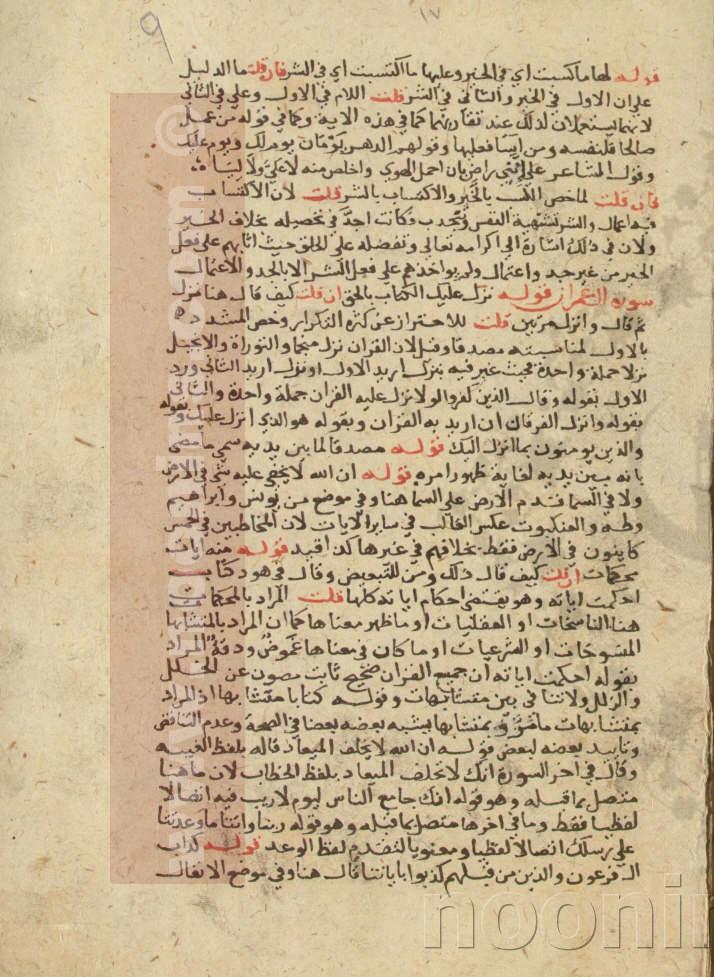 ١٧
9
قوله لها ما كسبت اي في الخير وعليها ما اكتسبت اي في الشر فان قلت ما الدليل
علي ان الاول في الخير والثاني في الشر قلت اللام في الاول وعلي في الثاني
لانهما يستعملان لذلك عند تقاربهما كما في هذه الاية وكما في قوله من عمل
صالحا فلنفسه ومن اساء فعليها وقولهم الدهر يومان يوم لك ويوم عليك
وقول الشاعر علي انني راض بان احمل الهوي واخلص منه لا علي ولا ليا
فان قلت لم خص الكسب بالخير والاكتساب بالشر قلت لان الاكتساب
فيه اعمال والشر تشتهيه النفس وتنجذب وكانت اجد في تحصيله بخلاف الخير
ولان في ذلك اشارة الي اكرامه تعالي وتفضله علي الخلق حيث اثابهم علي فعل
الخير من غير جد واعتمال ولم يواخذهم علي فعل الشر الا بالجد والاعتمال
سورة ال عمران قوله نزل عليك الكتاب بالحق ان قلت كيف قال هنا نزل
ثم قال وانزل مرتين قلت للاحتراز عن كثرة التكرار وخص المشدد
بالاول لمناسبته مصدقا وقيل لان القران نزل منجما والتوراة والانجيل
نزلا جملة واحدة فحيث عبر فيه بنزل اريد الاول او نزل اريد الثاني ورد
الاول بقوله وقال الذين كفروا لولا نزل عليه القران جملة واحدة والثاني
بقوله وانزل الفرقان ان اريد به القران وبقوله هو الذي انزل عليك وبقوله
والذين يومنون بما انزل اليك قوله مصدقا لما بين يديه سمي ما مضي
بانه بين يديه لغاية ظهور امره قوله ان الله لا يخفي عليه شي في الارض
ولا في السما قدم الارض علي السما هنا وفي موضع من يونس وابراهيم
وطه والعنكبوت عكس الغالب في ساير الايات لان المخاطبين في الخمس
كاينون في الارض فقط بخلافهم في غيرها كذا قيد قوله منه ايات
محكمات ان قلت كيف قال ذلك ومن للتبعيض وقال في هود كتاب
احكمت اياته وهو يقتضي احكام اياته كلها قلت المراد بالمحكمات
هنا الناسخات او العقليات او ما ظهر معناها كما ان المراد بالمتشابها
المنسوخات او الشرعيات او ما كان في معناها غموض ودقة المراد
بقوله احكمت اياته ان جميع القران صحيح ثابت مصون عن الخلل
والزلل ولا تنافي بين متشابهات وقوله كتابا متشابها اذ المراد
بمتشابهات ما مر وبمتشابها يشبه بعضه بعضا في الصحة وعدم التناقض
وتاييد بعضه لبعض قوله ان الله لا يخلف الميعاد قاله بلفظ الغيبه
وقال في اخر السورة انك لا تخلف الميعاد بلفظ الخطاب لان ما هنا
متصل بما قبله وهو قوله انك جامع الناس ليوم لا ريب فيه اتصالا
لفظيا فقط وما في اخرها متصل بما قبله وهو قوله ربنا واتنا ما وعدتنا
علي رسلك اتصالا لفظيا ومعنويا لتقدم لفظ الوعد قوله كداب
ال فرعون والذين من قبلهم كذبوا باياتنا قال هنا وفي موضع الانفال